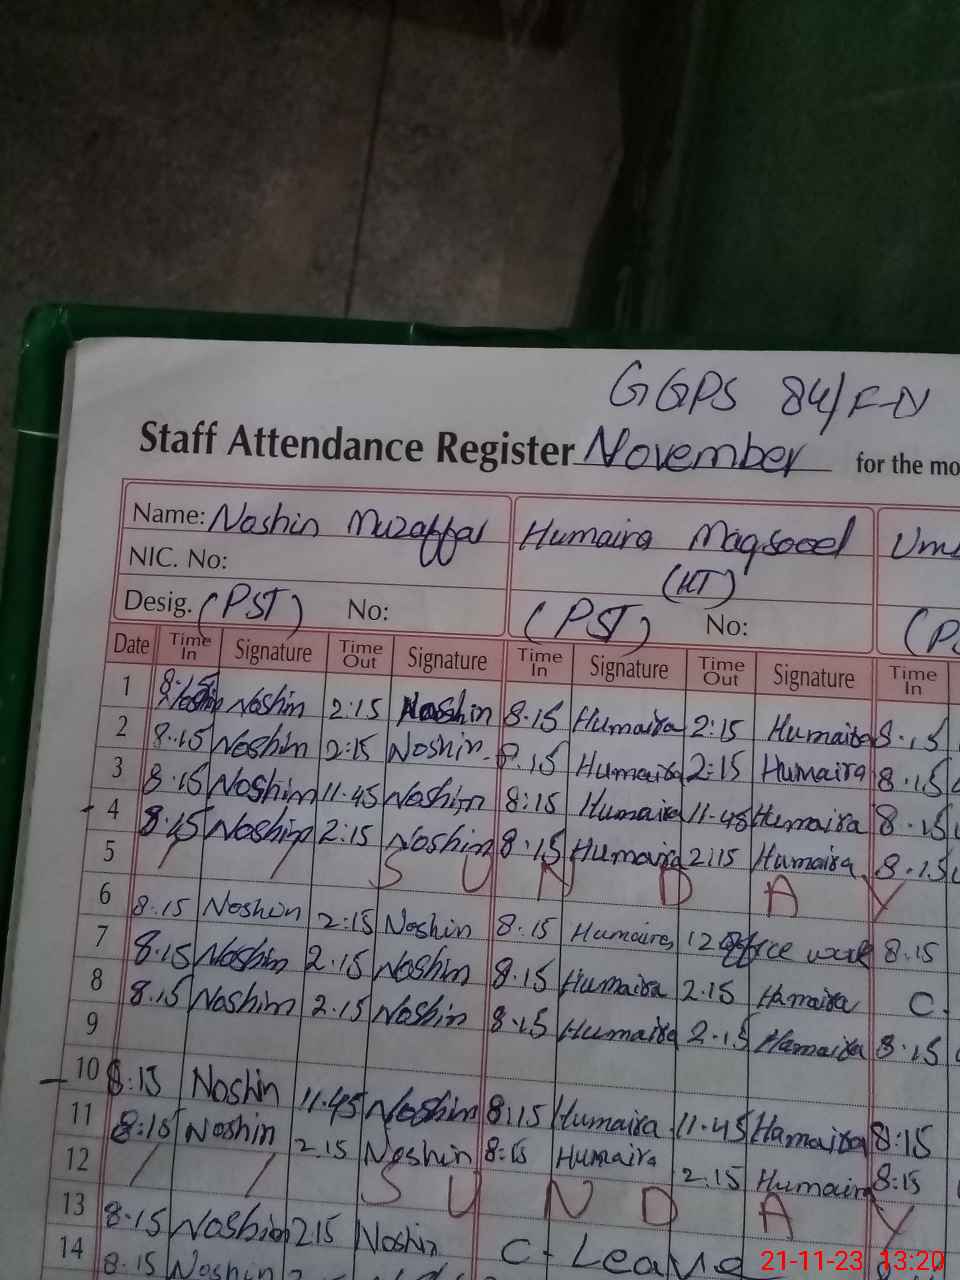 GGPS 84/F-N
Staff Attendance Register November for the mo
Name: Noshin Muzaffar Humaira Maqsood Um
NIC. No: (HT)
Desig. (PST) No: (PST) No: (P
Date Time In Signature Time Out Signature Time In Signature Time Out Signature Time In
1 8:15 Noshin 2:15 Noshin 8.15 Humaira 2:15 Humaira 8.15
2 8.15 Noshin 2:15 Noshin 8.15 Humaira 2:15 Humaira 8.15
3 8.15 Noshin 11.45 Noshin 8:15 Humaira 11.45 Humaira 8.15
4 8:15 Noshin 2:15 Noshin 8.15 Humaira 2:15 Humaira 8.15
5 S U N D A Y
6 8:15 Noshin 2:15 Noshin 8.15 Humaira 12 office work 8.15
7 8.15 Noshin 2.15 Noshin 8.15 Humaira 2.15 Humaira C.
8 8.15 Noshin 2.15 Noshin 8.15 Humaira 2.15 Humaira 8.15
9
10 8:15 Noshin 11.45 Noshin 8:15 Humaira 11.45 Humaira 8:15
11 8:15 Noshin 2.15 Noshin 8:15 Humaira 2.15 Humaira 8:15
12 S U N D A Y
13 8.15 Noshin 2 15 Noshin C - Leave
14 8.15 Noshin
21-11-23 13:20